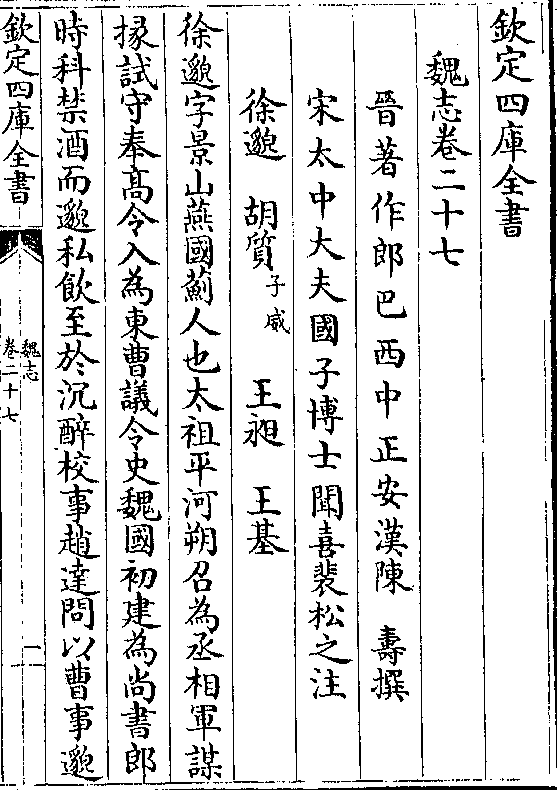 欽定四庫全書
魏志卷二十七
晉著作郎巴西中正安漢陳 壽撰
宋太中大夫國子博士聞喜裴松之注
徐邈 胡質子威 王昶 王基
徐邈字景山燕國薊人也太祖平河朔召為丞相軍謀
掾試守奉髙令入為東曹議令史魏國初建為尚書郎
時科禁酒而邈私飲至於沉醉校事趙達問以曹事邈
欽定四庫全書
魏志
卷二十七
一